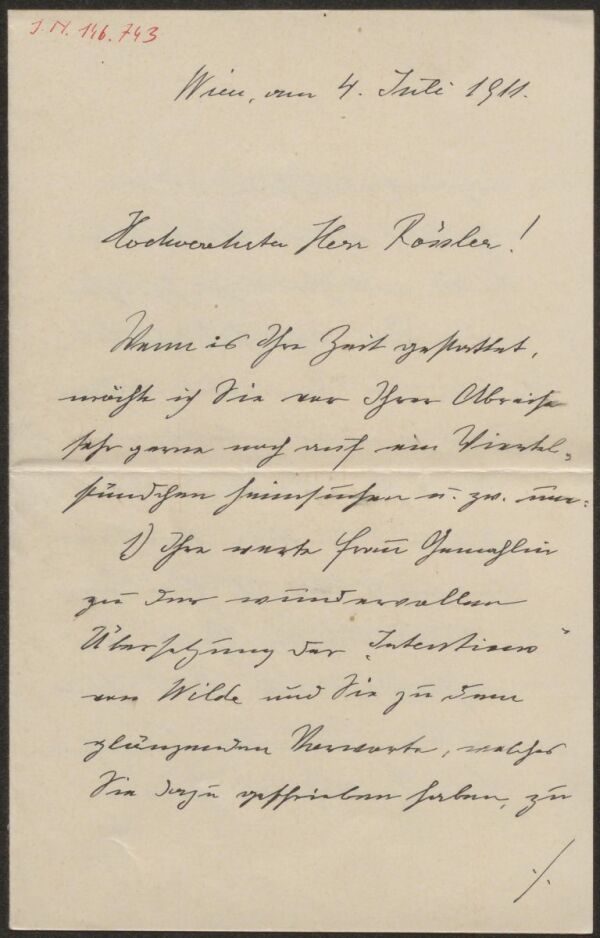 J.N. 146.743
Wien, am 4. Juli 1911.
Hochverehrter Herr Rössler!
Wenn es Ihre Zeit gestattet,
möchte ich Sie vor Ihrer Abreise
sehr gerne noch auf ein Viertel-
stündchen heimsuchen u. zw. um:
1) Ihre werte Frau Gemahlin
zu der wundervollen
Übersetzung der „Intentions“
von Wilde und Sie zu dem
glänzenden Vorworte, welches
Sie dazu geschrieben haben, zu
./.